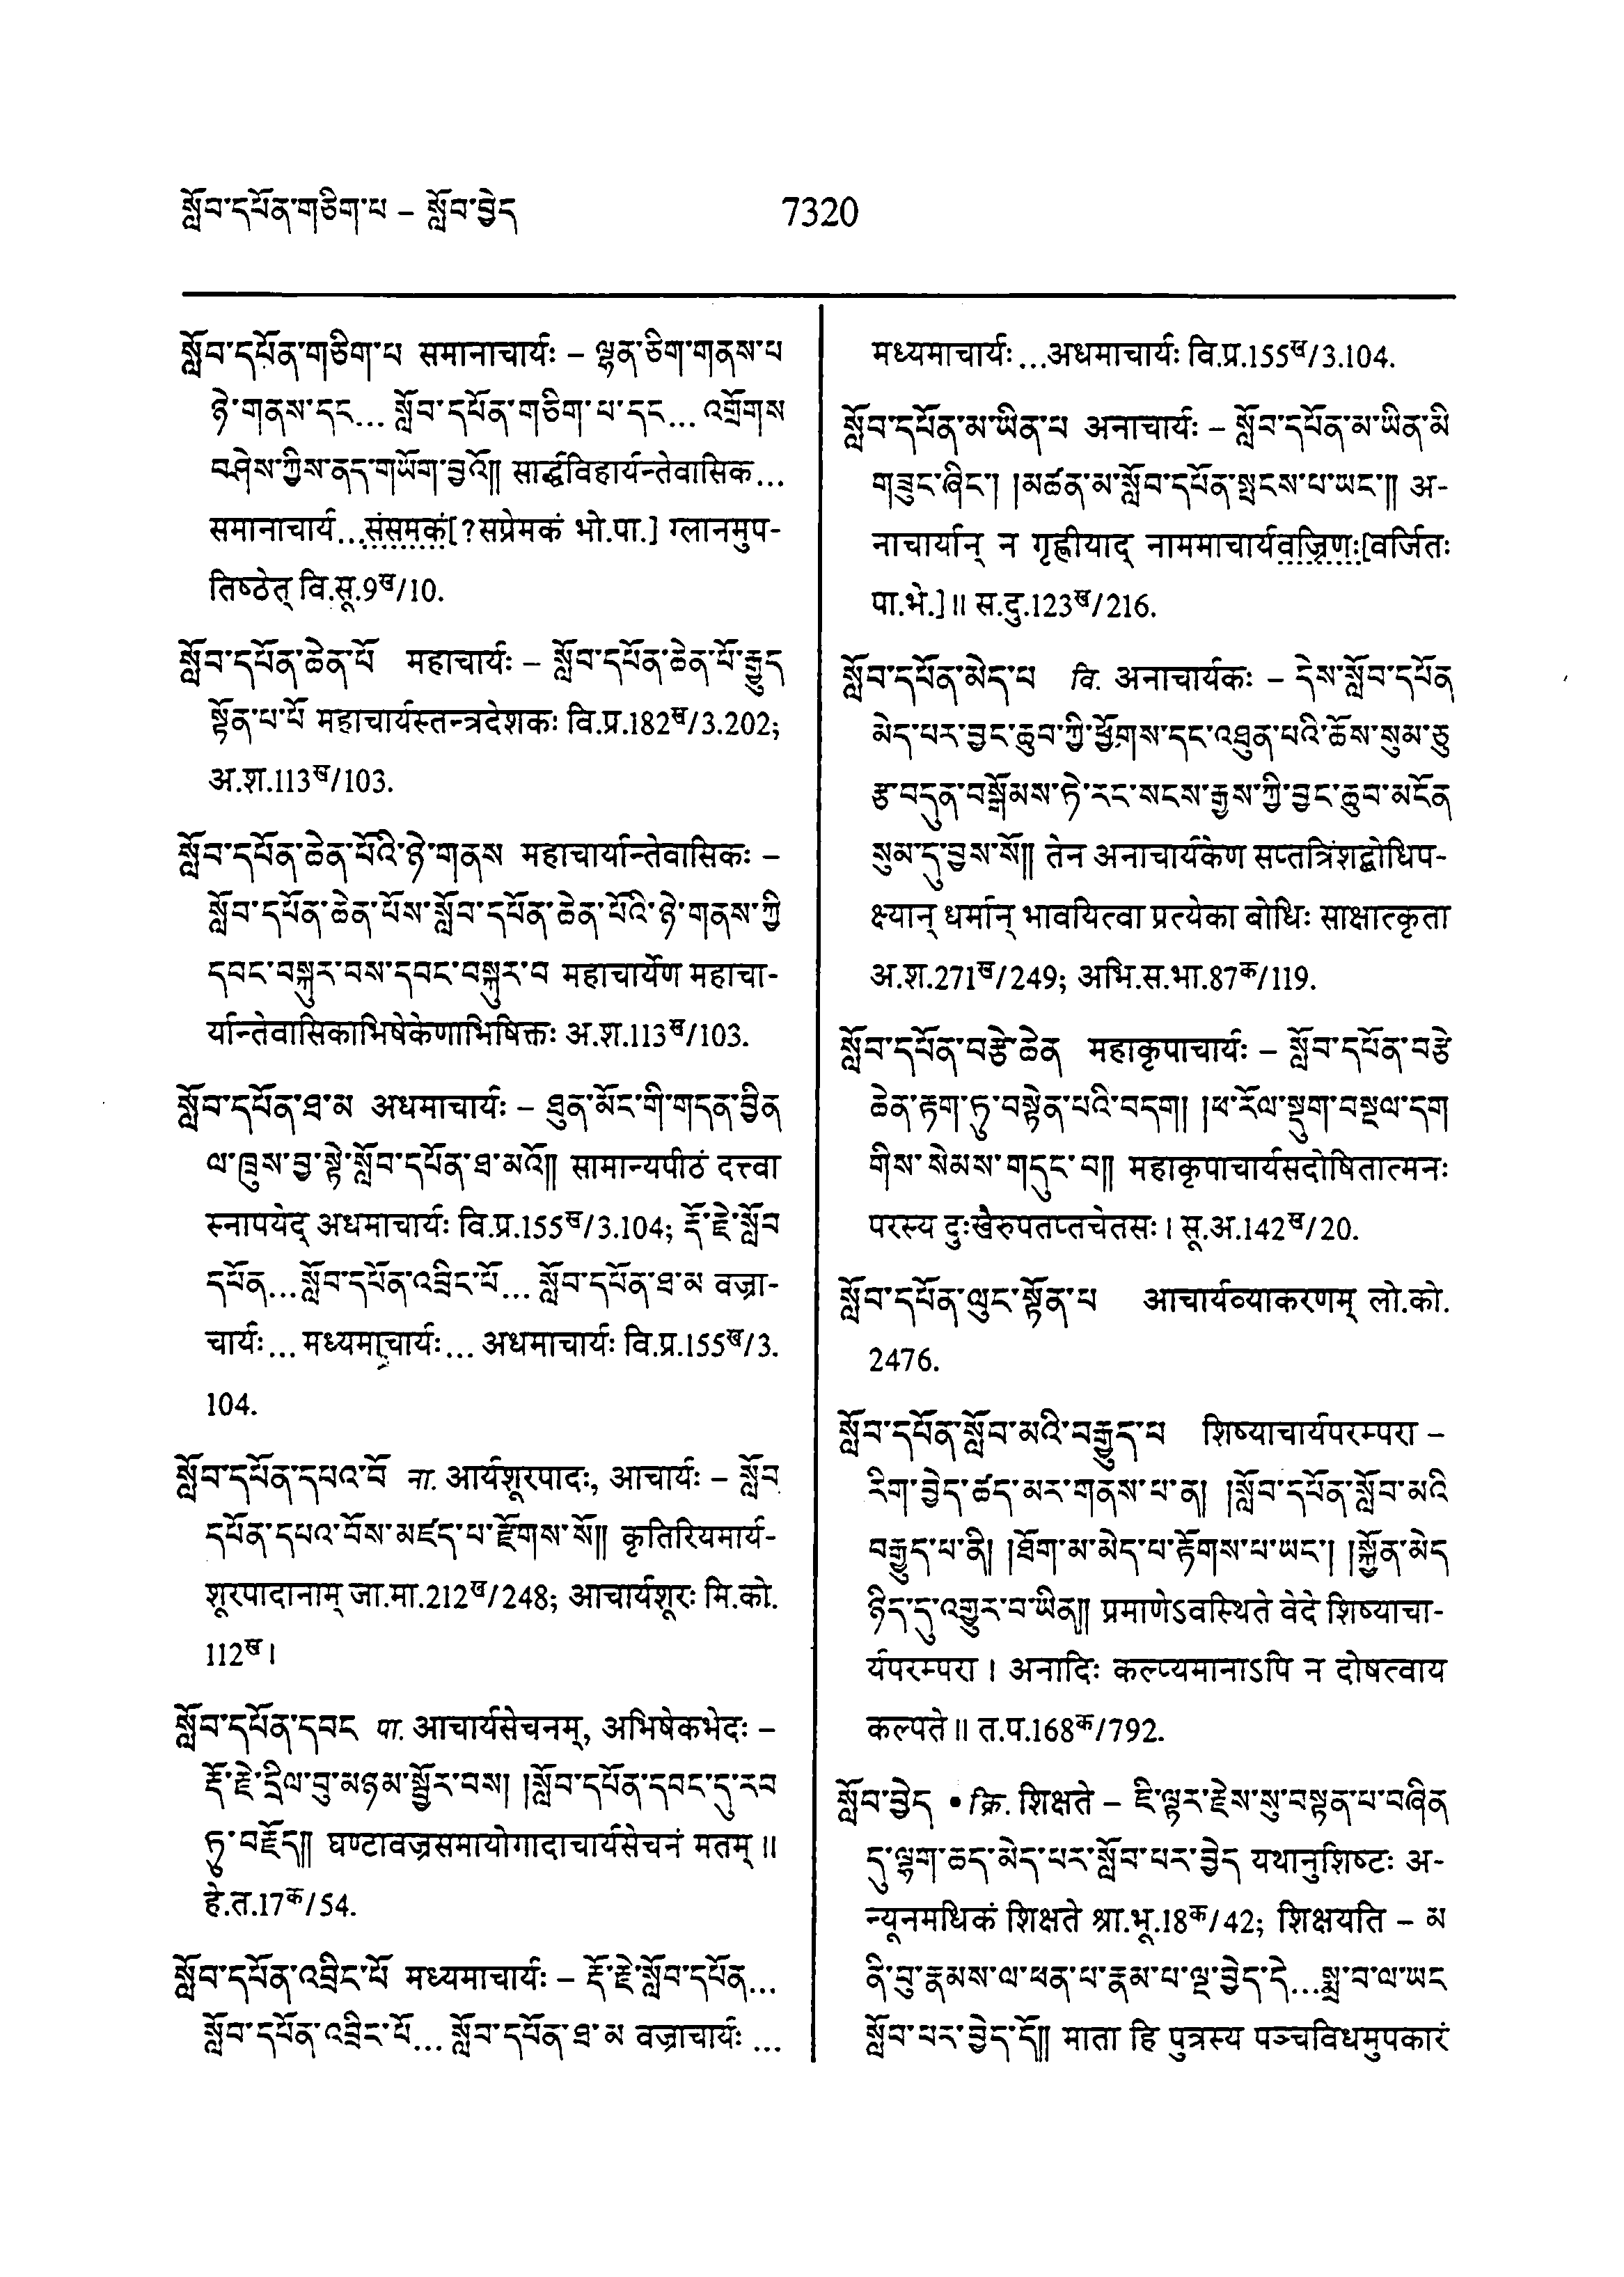 སློབ་དཔོན་གཅིག་པ – སློབ་བྱེད
7320
སློབ་དཔོན་གཅིག་པ समानाचार्यः – ལྷན་ཅིག་གནས་པ
ཉེ་གནས་དང... སློབ་དཔོན་གཅིག་པ་དང... འགྲོགས
བཤེས་ཀྱིས་ནད་གཡོག་བྱའོ༎ सार्द्धविहार्यन्तेवासिक...
समानाचार्य...संसमकं[?सप्रेमकं भो.पा.] ग्लानमुप-
तिष्ठेत् वि.सू.9ख/10.
སློབ་དཔོན་ཆེན་པོ महाचार्यः – སློབ་དཔོན་ཆེན་པོ་རྒྱུད
སྟོན་པ་པོ महाचार्यस्तन्त्रदेशकः वि.प्र.182ख/3.202;
अ.श.113ख/103.
སློབ་དཔོན་ཆེན་པོའི་ཉེ་གནས महाचार्यान्तेवासिकः –
སློབ་དཔོན་ཆེན་པོས་སློབ་དཔོན་ཆེན་པོའི་ཉེ་གནས་ཀྱི
དབང་བསྐུར་བས་དབང་བསྐུར་བ महाचार्येण महाचा-
र्यान्तेवासिकाभिषेकेणाभिषिक्तः अ.श.113ख/103.
སློབ་དཔོན་ཐ་མ अधमाचार्यः – ཐུན་མོང་གི་གདན་བྱིན
ལ་ཁྲུས་བྱ་སྟེ་སློབ་དཔོན་ཐ་མའོ༎ सामान्यपीठं दत्त्वा
स्नापयेद् अधमाचार्यः वि.प्र.155ख/3.104; རྡོ་རྗེ་སློབ
དཔོན...སློབ་དཔོན་འབྲིང་པོ... སློབ་དཔོན་ཐ་མ वज्रा-
चार्यः... मध्यमाचार्यः... अधमाचार्यः वि.प्र.155ख/3.
104.
སློབ་དཔོན་དཔའ་བོ ना. आर्यशूरपादः, आचार्यः – སློབ
དཔོན་དཔའ་བོས་མཛད་པ་རྫོགས་སོ༎ कृतिरियमार्य-
शूरपादानाम् जा.मा.212ख/248; आचार्यशूरः मि.को.
112ख।
སློབ་དཔོན་དབང पा. आचार्यसेचनम्, अभिषेकभेदः –
རྡོ་རྗེ་དྲིལ་བུ་མཉམ་སྦྱོར་བས། །སློབ་དཔོན་དབང་དུ་རབ
ཏུ་བརྗོད༎ घण्टावज्रसमायोगादाचार्यसेचनं मतम्॥
हे.त.17क/54.
སློབ་དཔོན་འབྲིང་པོ मध्यमाचार्यः – རྡོ་རྗེ་སློབ་དཔོན...
སློབ་དཔོན་འབྲིང་པོ... སློབ་དཔོན་ཐ་མ वज्राचार्यः ...
मध्यमाचार्यः ...अधमाचार्यः वि.प्र.155ख/3.104.
སློབ་དཔོན་མ་ཡིན་པ अनाचार्यः – སློབ་དཔོན་མ་ཡིན་མི
གཟུང་ཞིང་། །མཚན་མ་སློབ་དཔོན་སྤངས་པ་ཡང་༎ अ-
नाचार्यान् न गृह्णीयाद् नाममाचार्यवज्रिणः[वर्जितः
पा.भे.]॥ स.दु.123ख/216.
སློབ་དཔོན་མེད་པ वि. अनाचार्यकः – དེས་སློབ་དཔོན
མེད་པར་བྱང་ཆུབ་ཀྱི་ཕྱོགས་དང་འཐུན་པའི་ཆོས་སུམ་ཅུ
རྩ་བདུན་བསྒོམས་ཏེ་རང་སངས་རྒྱས་ཀྱི་བྱང་ཆུབ་མངོན
སུམ་དུ་བྱས་སོ༎ तेन अनाचार्यकेण सप्तत्रिंशद्बोधिप-
क्ष्यान् धर्मान् भावयित्वा प्रत्येका बोधिः साक्षात्कृता
अ.श.271ख/249; अभि.स.भा.87क/119.
སློབ་དཔོན་བརྩེ་ཆེན महाकृपाचार्यः – སློབ་དཔོན་བརྩེ
ཆེན་རྟག་ཏུ་བསྟེན་པའི་བདག། །ཕ་རོལ་སྡུག་བསྔལ་དག
གིས་སེམས་གདུང་བ༎ महाकृपाचार्यसदोषितात्मनः
परस्य दुःखैरुपतप्तचेतसः। सू.अ.142ख/20.
སློབ་དཔོན་ལུང་སྟོན་པ आचार्यव्याकरणम् लो.को.
2476.
སློབ་དཔོན་སློབ་མའི་བརྒྱུད་པ शिष्याचार्यपरम्परा –
རིག་བྱེད་ཚད་མར་གནས་པ་ན། །སློབ་དཔོན་སློབ་མའི
བརྒྱུད་པ་ནི། །ཐོག་མ་མེད་པ་རྟོགས་པ་ཡང་། །སྐྱོན་མེད
ཉིད་དུ་འགྱུར་བ་ཡིན༎ प्रमाणेऽवस्थिते वेदे शिष्याचा-
र्यपरम्परा। अनादिः कल्प्यमानाऽपि न दोषत्वाय
कल्पते॥ त.प.168क/792.
སློབ་བྱེད • क्रि. शिक्षते – ཇི་ལྟར་རྗེས་སུ་བསྟན་པ་བཞིན
དུ་ལྷག་ཆད་མེད་པར་སློབ་པར་བྱེད यथानुशिष्टः अ-
न्यूनमधिकं शिक्षते श्रा.भू.18क/42; शिक्षयति – མ
ནི་བུ་རྣམས་ལ་ཕན་པ་རྣམ་པ་ལྔ་བྱེད་དེ...སྨྲ་བ་ལ་ཡང
སློབ་པར་བྱེད་དོ༎ माता हि पुत्रस्य पञ्चविधमुपकारं